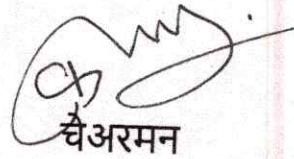 चेअरमन